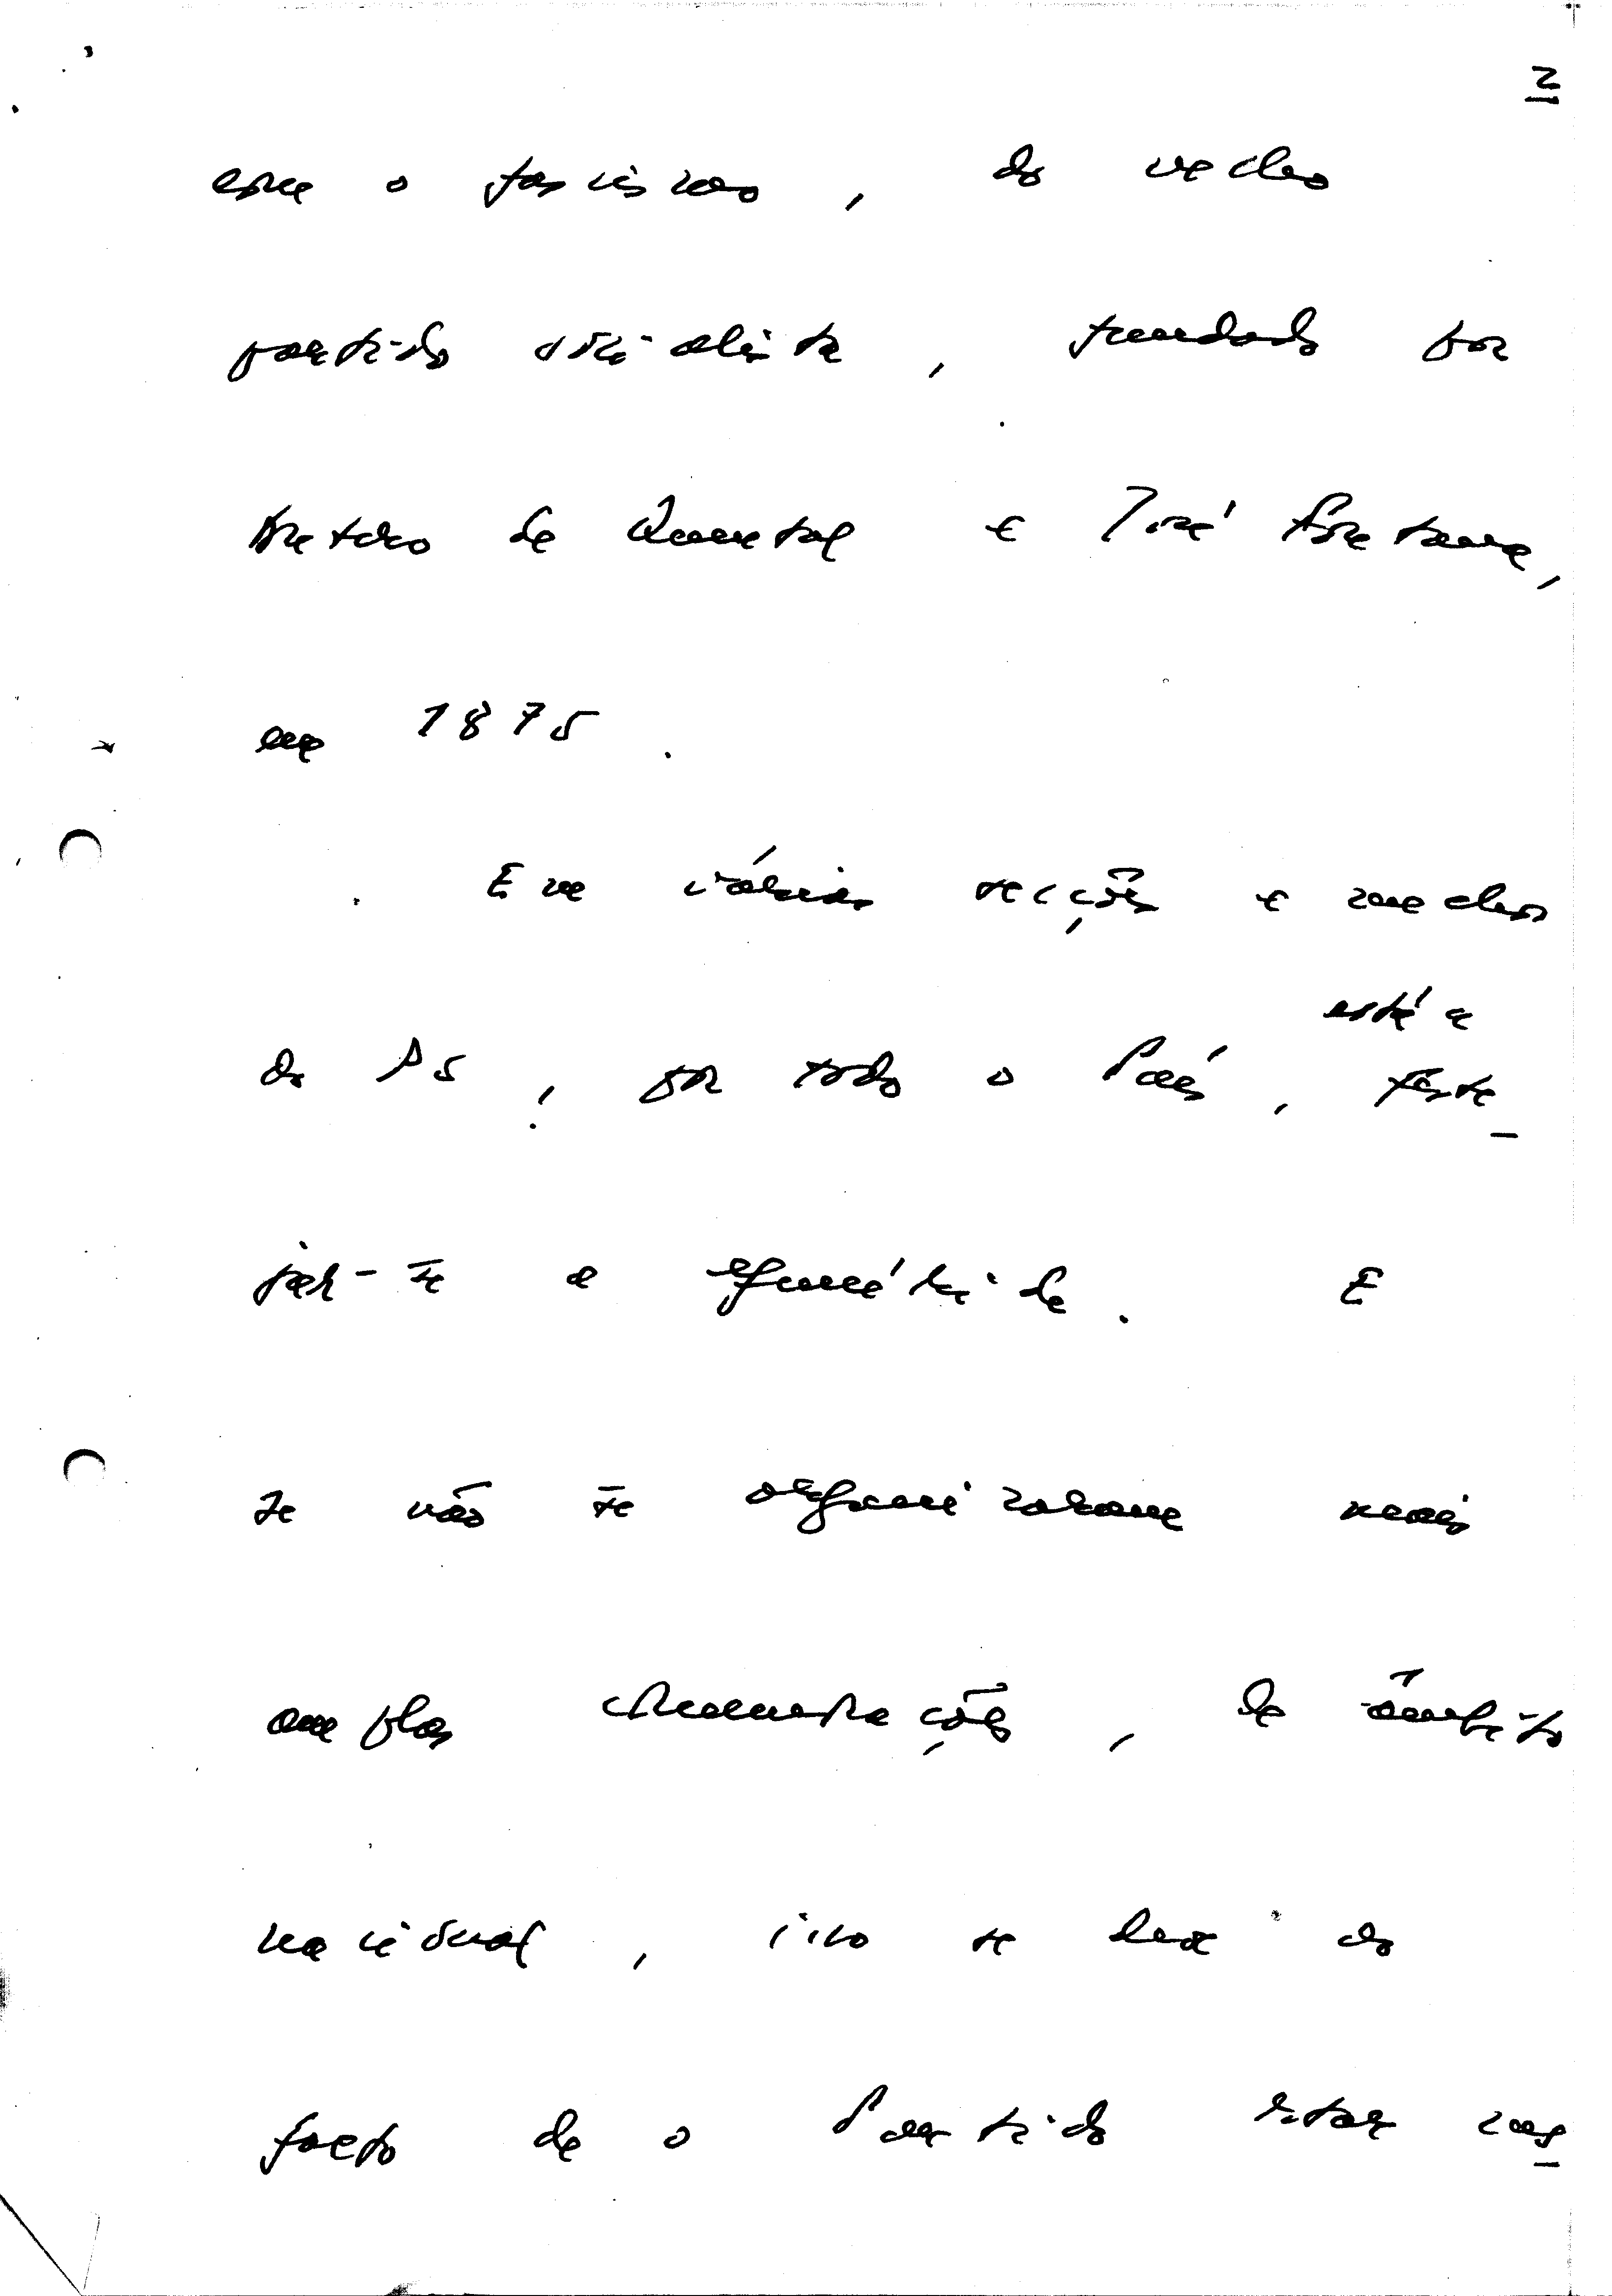 2
com o fascismo, do velho
partido socialista, fundado por
Antero de Quental e José Fontana,
em 1875.
Em várias secções e núcleos
do PS, por todo o País, está a feste_
jar-se a efeméride. E
se não se organizaram mais
amplas comemorações, de âmbito
nacional, isso se deve ao
facto de o Partido estar